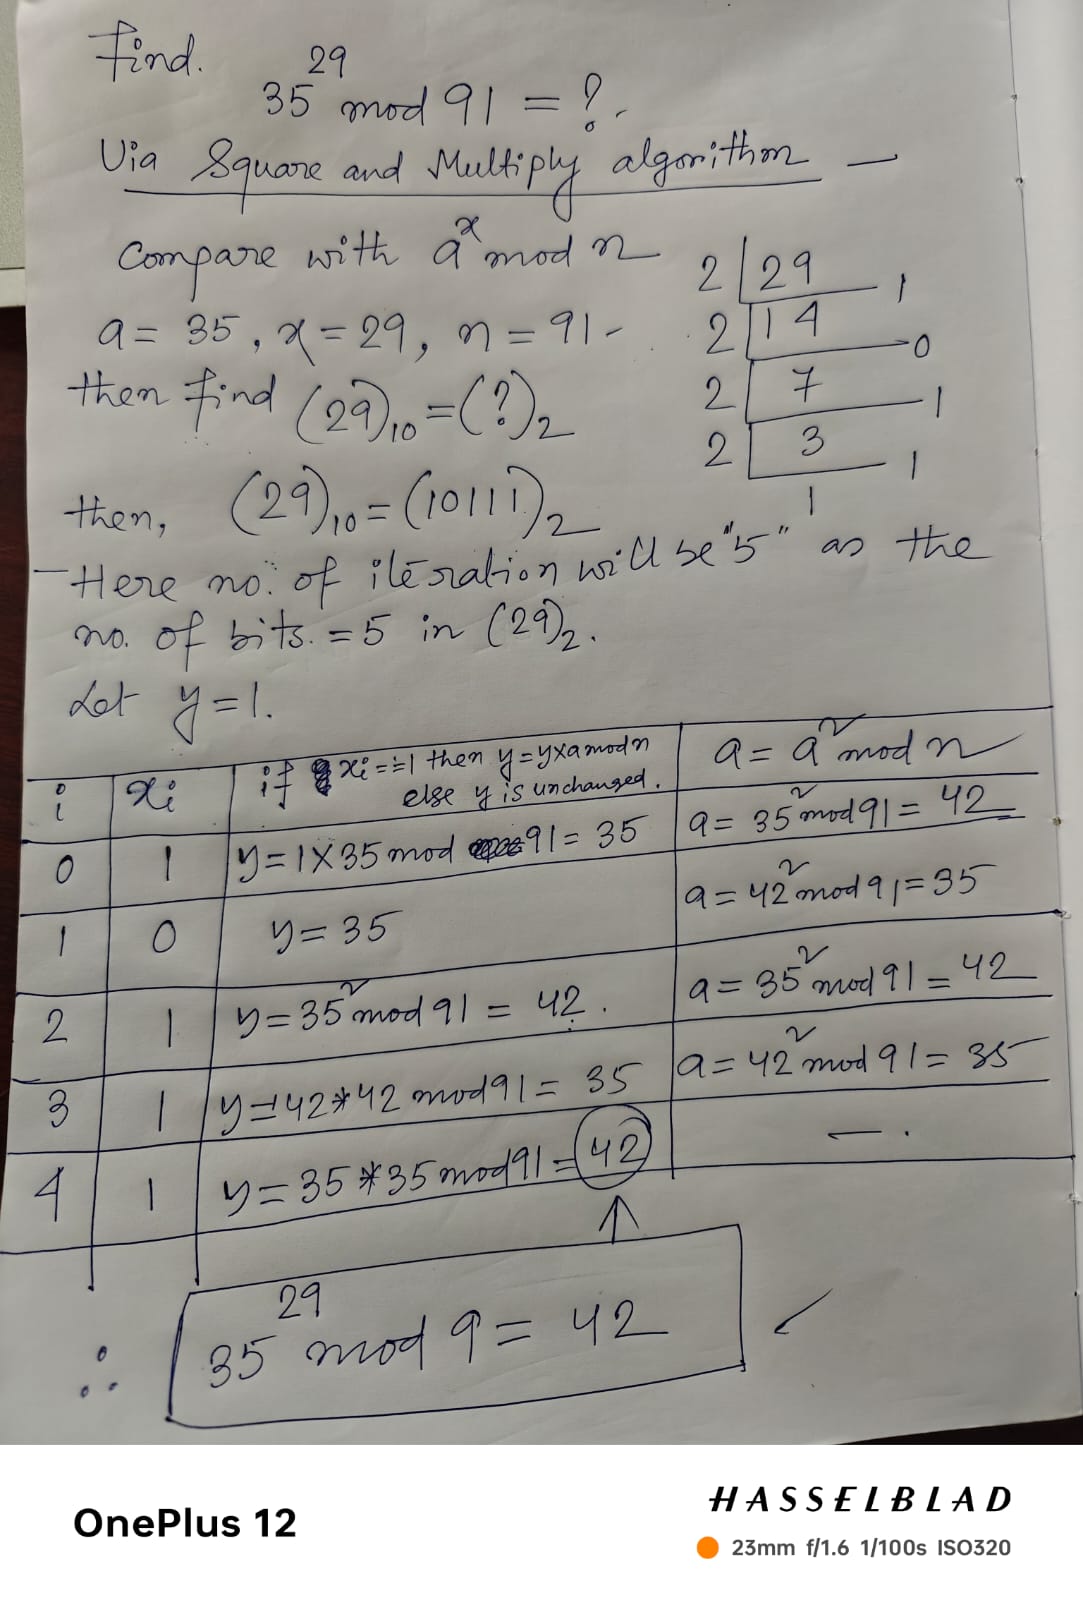 Find.
35^29 mod 91 = ?.
Via Square and Multiply algorithm —
Compare with a^x mod n
a = 35, x = 29, n = 91 -
then find (29)₁₀ = (?)₂
2 | 29 1
2 | 14 0
2 | 7 1
2 | 3 1
1
then, (29)₁₀ = (10111)₂
Here no. of iteration will be "5" as the
no. of bits. = 5 in (29)₂.
Let y = 1.
i xi if xi == 1 then y = y x a mod n a = a² mod n
else y is unchanged.
0 1 y = 1 X 35 mod 91 = 35 a = 35² mod 91 = 42
1 0 y = 35 a = 42² mod 91 = 35
2 1 y = 35² mod 91 = 42. a = 35² mod 91 = 42
3 1 y = 42 * 42 mod 91 = 35 a = 42² mod 91 = 35
4 1 y = 35 * 35 mod 91 = 42 — .
∴ 35^29 mod 9 = 42 ✓
OnePlus 12
HASSELBLAD
23mm f/1.6 1/100s ISO320